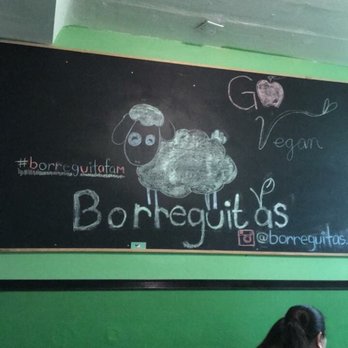 Go
Vegan
#borreguitafam
Borreguitas
@borreguitas.